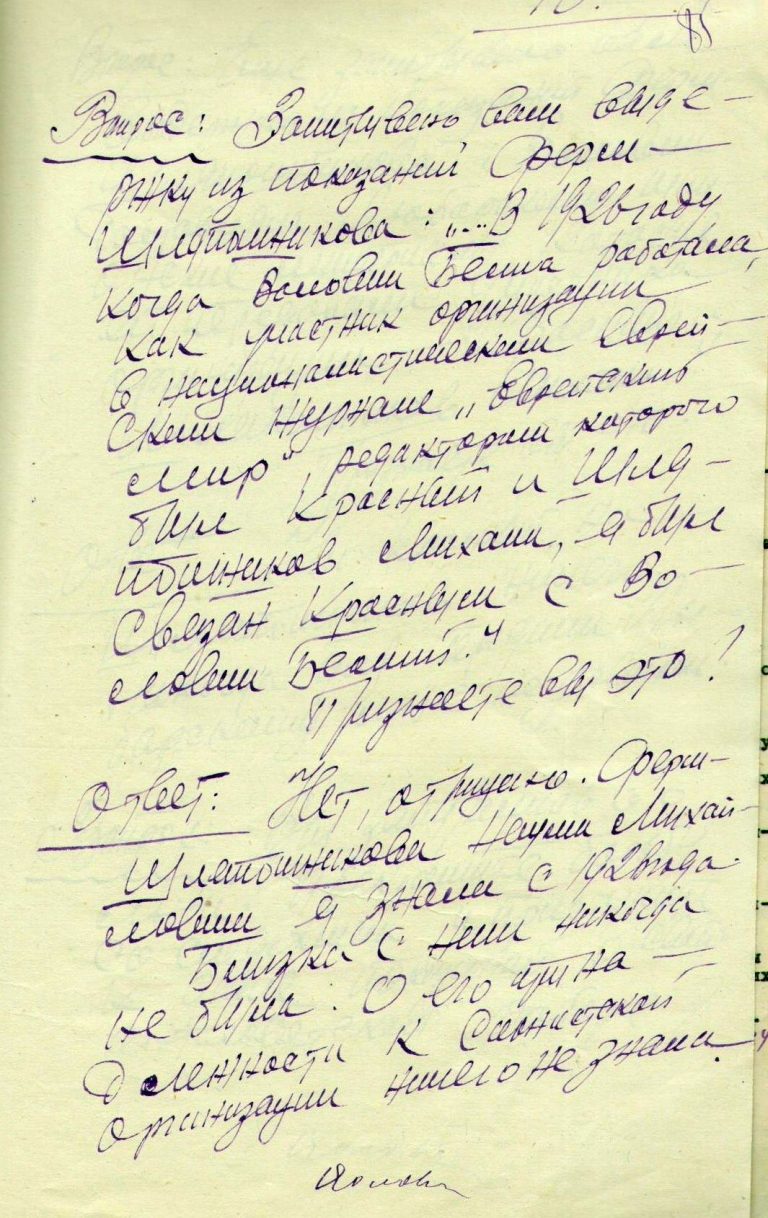 85
Вопрос: Зачитываю вам выде-
ржку из показаний Ферм-
Шляпошникова: „... В 1926 году
когда Воловин Белла работала,
как участник организации
в националистическом еврей-
ском журнале „Еврейский
мир", редактором которого
был Красный и Шля-
пошников Михаил, я был
связан Красным с Во-
ловин Беллой."
Признаете вы это?
Ответ: Нет, отрицаю. Ферм-
Шляпошникова Наума Михай-
ловича я знала с 1926 года.
Близка с ним никогда
не была. О его прина-
длежности к Сионистской
организации ничего не знала.